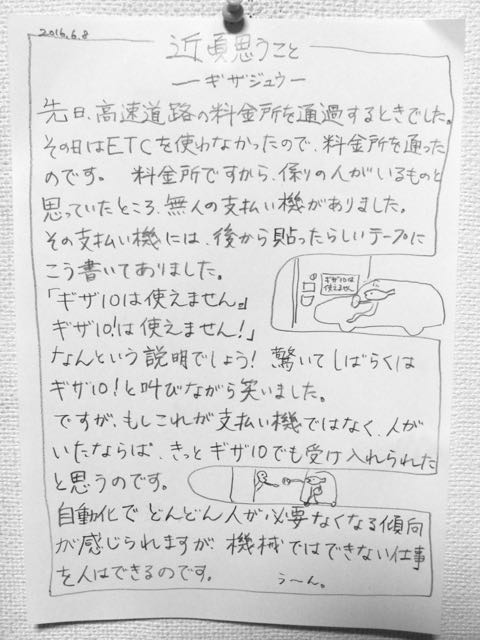 2016.6.8
近頃思うこと
ーギザジュウー
先日、高速道路の料金所を通過するときでした。
その日はETCを使わなかったので、料金所を通った
のです。 料金所ですから、係りの人がいるものと
思っていたところ、無人の支払い機がありました。
その支払い機には、後から貼ったらしいテープに
こう書いてありました。
ギザ10は
使えません
「ギザ10は使えません。
ギザ10!は使えません!」
なんという説明でしょう! 驚いてしばらくは
ギザ10!と叫びながら笑いました。
ですが、もしこれが支払い機ではなく、人が
いたならば、きっとギザ10でも受け入れられた
と思うのです。
自動化でどんどん人が必要なくなる傾向
が感じられますが、機械ではできない仕事
を人はできるのです。 う〜ん。